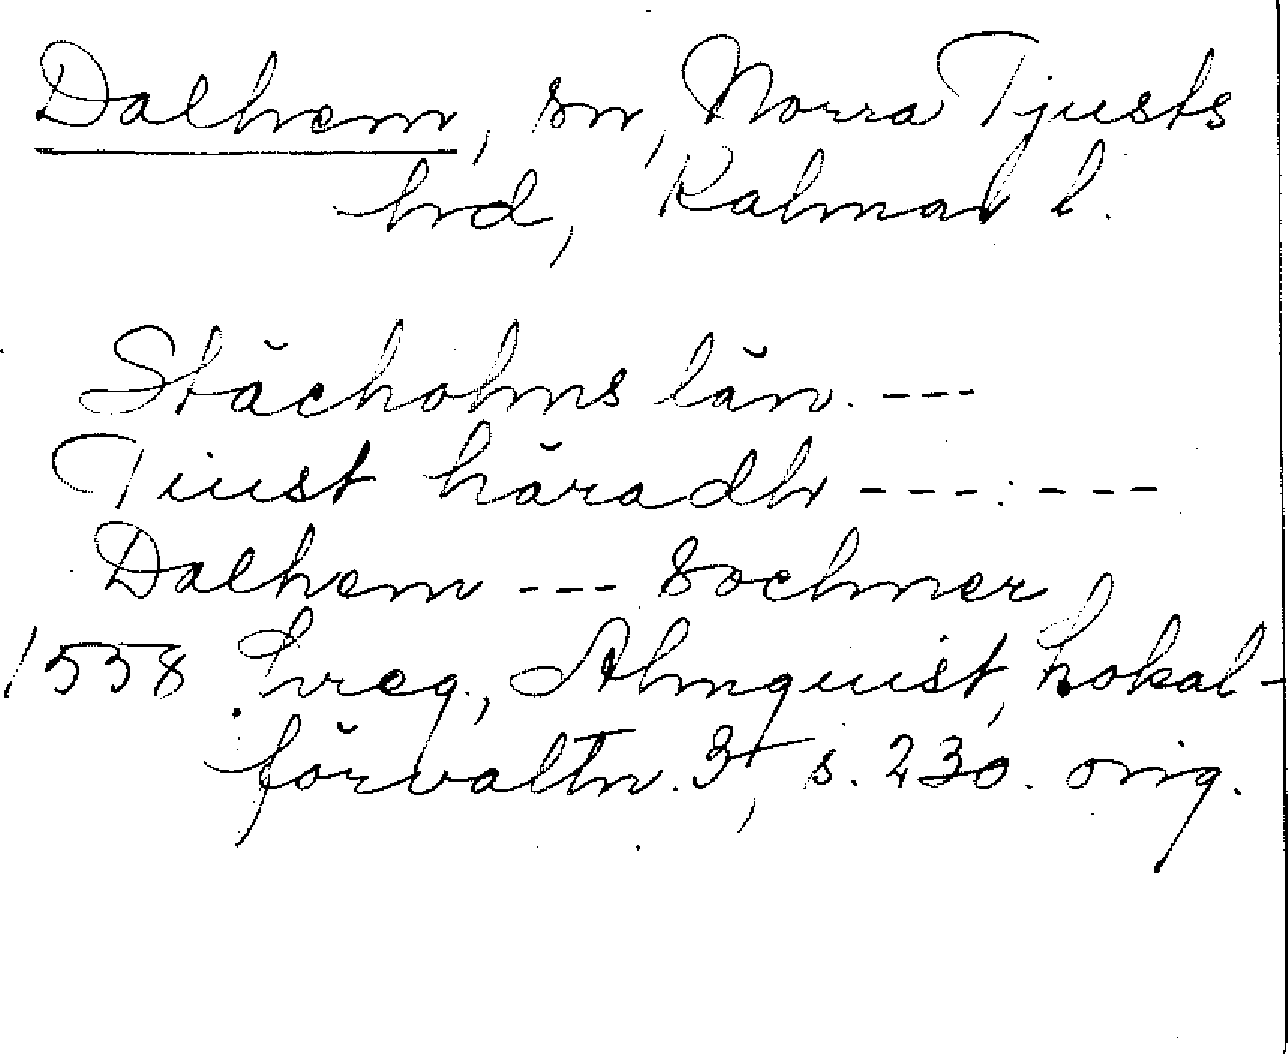 Dalhem, sn, Norra Tjusts
hrd, Kalmar l.
Stächolms län. ---
Tiust häradh ---:---
Dalhem --- Sochner
1558 Lreg., Almquist, Lokal-
förvaltn. 3, s. 230. orig.